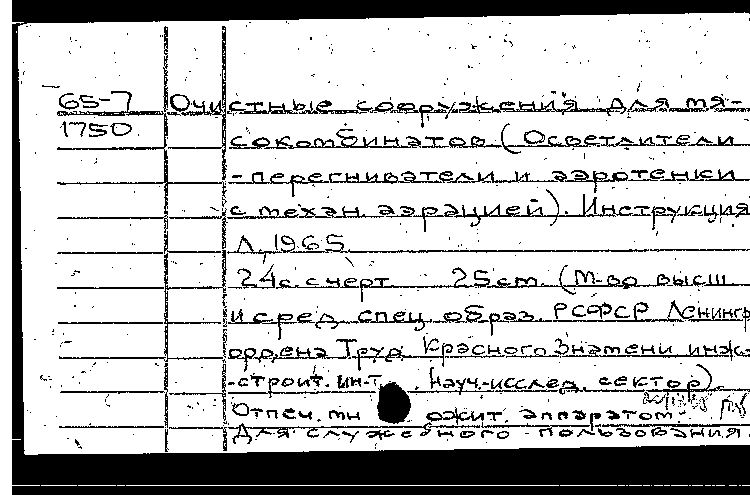 65-7 Очистные сооружения для мя-
1750 сокомбинатов (Осветлители
-перегниватели и аэротенки
с механ. аэрацией). Инструкция
Л., 1965.
24с. с черт. 25 см. (М-во высш
и сред. спец. образ. РСФСР Ленингр
ордена Труд. Красного Знамени инж.-
-строит. ин-т. Науч.-исслед. сектор).
Отпеч. мн ожит. аппаратом.
Для служебного пользования.